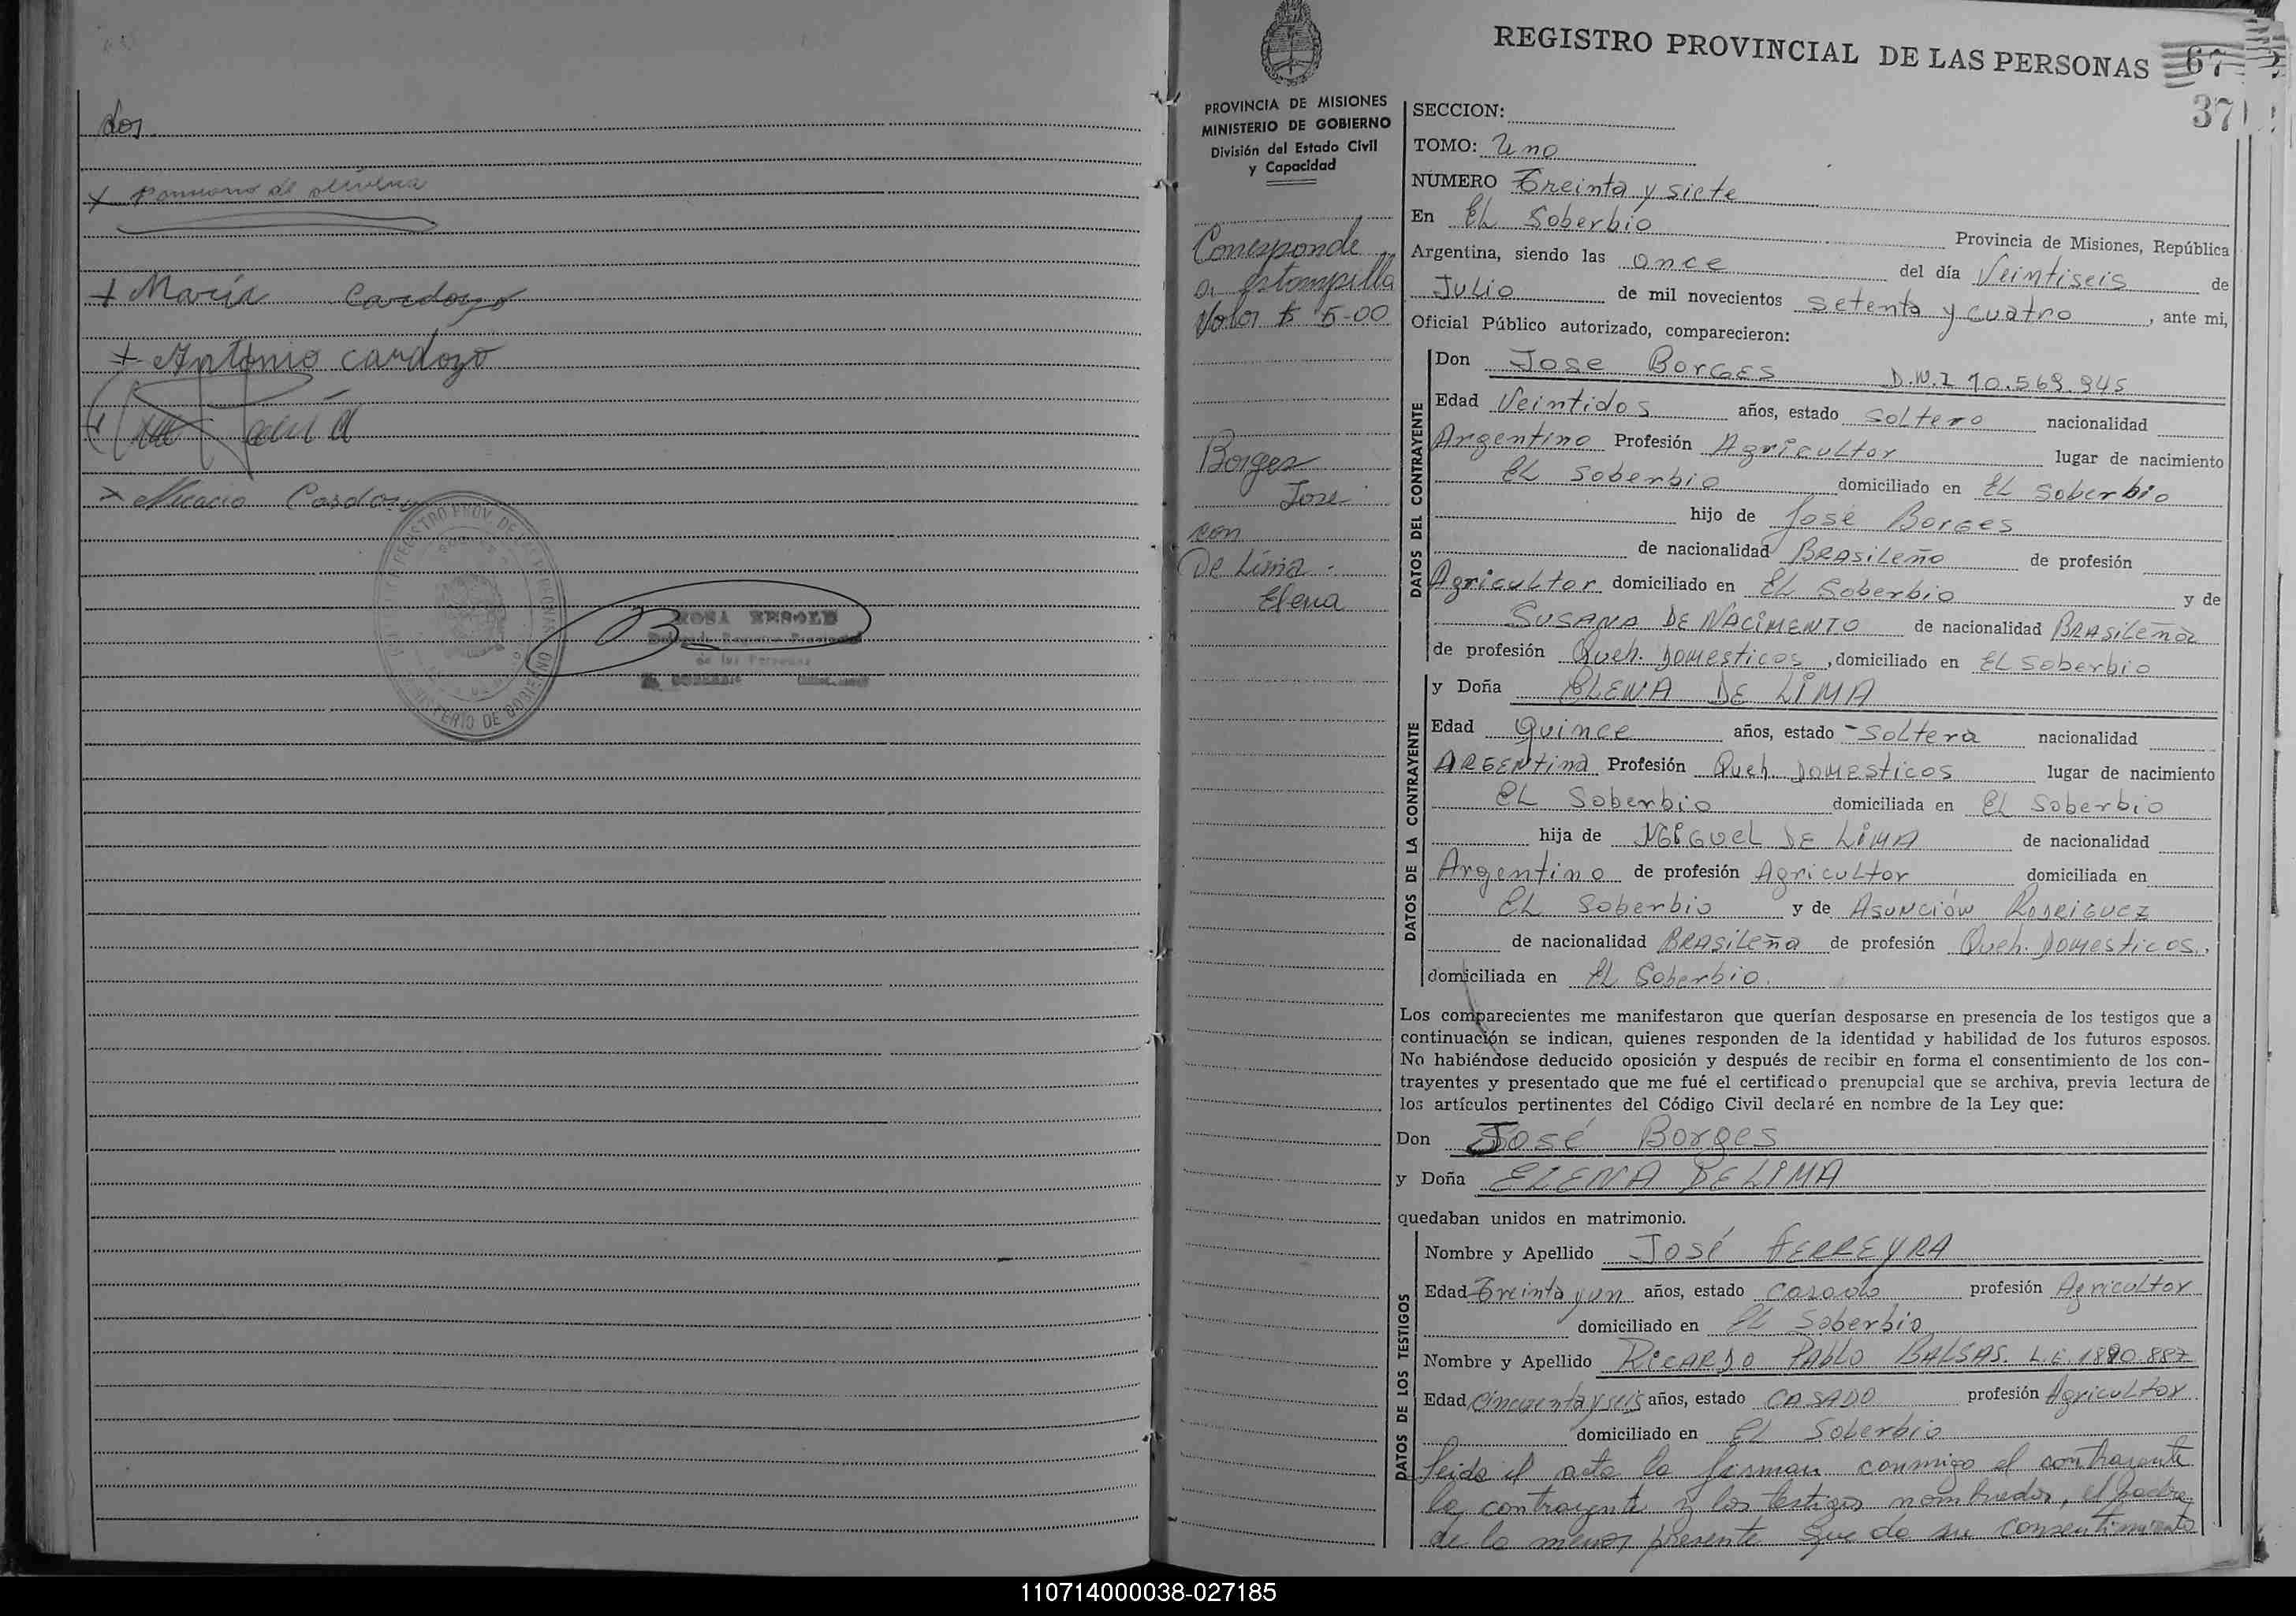 dos.
María Cardozo
Antonio Cardozo
Cardozo
REGISTRO PROV. DE
MINISTERIO DE GOBIERNO
ROSA
de las Personas
REGISTRO PROVINCIAL DE LAS PERSONAS 67
37
PROVINCIA DE MISIONES
MINISTERIO DE GOBIERNO
División del Estado Civil
y Capacidad
Corresponde
a estampilla
Valor $ 5-00
Borges
José
con
De Lima
Elena
SECCION:
TOMO: Uno
NUMERO Treinta y siete
En El Soberbio Provincia de Misiones, República
Argentina, siendo las once del día Veintiseis de
Julio de mil novecientos setenta y cuatro, ante mi,
Oficial Público autorizado, comparecieron:
DATOS DEL CONTRAYENTE
Don Jose Borges D.N.I 10.569.945
Edad Veintidos años, estado soltero nacionalidad
Argentino Profesión Agricultor lugar de nacimiento
El Soberbio domiciliado en El Soberbio
hijo de José Borges
de nacionalidad Brasileño de profesión
Agricultor domiciliado en El Soberbio y de
Susana De Nacimento de nacionalidad Brasileña
de profesión Queh. Domesticos, domiciliado en El Soberbio
DATOS DE LA CONTRAYENTE
y Doña ELENA DE LIMA
Edad Quince años, estado -Soltera nacionalidad
ARGENTINA Profesión Queh. Domesticos lugar de nacimiento
El Soberbio domiciliada en El Soberbio
hija de Miguel DE LIMA de nacionalidad
Argentino de profesión Agricultor domiciliada en
El Soberbio y de Asunción Rodriguez
de nacionalidad Brasileña de profesión Queh. Domesticos.,
domiciliada en El Soberbio.
Los comparecientes me manifestaron que querían desposarse en presencia de los testigos que a
continuación se indican, quienes responden de la identidad y habilidad de los futuros esposos.
No habiéndose deducido oposición y después de recibir en forma el consentimiento de los con-
trayentes y presentado que me fué el certificado prenupcial que se archiva, previa lectura de
los artículos pertinentes del Código Civil declaré en nombre de la Ley que:
Don José Borges
y Doña ELENA DE LIMA
quedaban unidos en matrimonio.
DATOS DE LOS TESTIGOS
Nombre y Apellido José FERREYRA
Edad Treinta y un años, estado casado profesión Agricultor
domiciliado en El Soberbio
Nombre y Apellido RICARDO PABLO BALSAS. L.E. 1890.887
Edad Cincuenta y seis años, estado CASADO profesión Agricultor
domiciliado en El Soberbio
Leida el acta la firman conmigo el contrayente
la contrayente y los testigos nombrados, el padre
de la menor presente que da su consentimiento
110714000038-027185